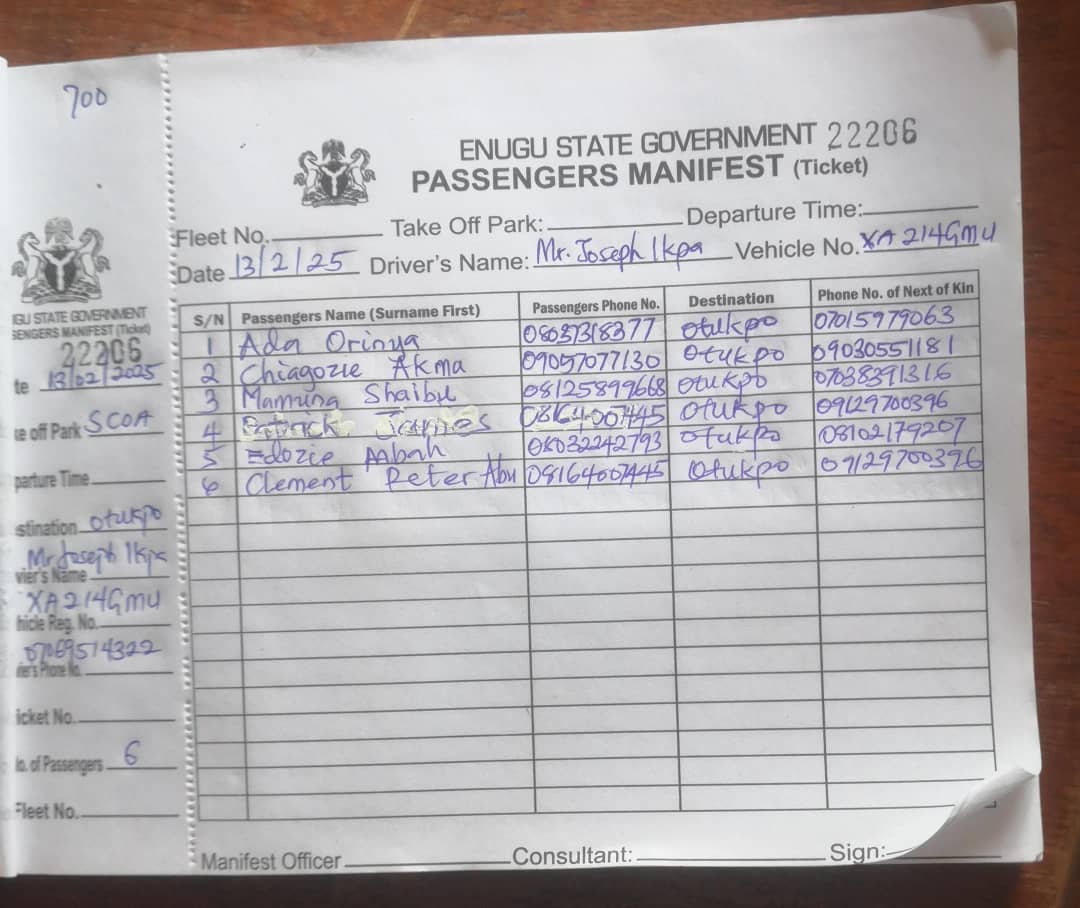 700
GU STATE GOVERNMENT
SENGERS MANIFEST (Ticket)
22206
te 13/02/2025
ke off Park SCOA
parture Time
stination Otukpo
Mr Joseph Ikpa
vier's Name
XA214GMU
hicle Reg. No.
07069514322
ier's Phone No.
icket No.
lo. of Passengers 6
Fleet No.
ENUGU STATE GOVERNMENT 22206
PASSENGERS MANIFEST (Ticket)
Fleet No. Take Off Park: Departure Time:
Date 13/2/25 Driver's Name: Mr. Joseph Ikpa Vehicle No. XA 214GMU
S/N Passengers Name (Surname First) Passengers Phone No. Destination Phone No. of Next of Kin
1 Ada Orinya 08037318377 Otukpo 07015979063
2 Chiagozie Akma 09057077130 Otukpo 09030551181
3 Mamuna Shaibu 08125899668 Otukpo 07038391316
4 Patrick James 08164007445 Otukpo 09129700396
5 Edozie Mbah 08032242793 Otukpo 08102179207
6 Clement Peter Abu 08164007445 Otukpo 09129700396
Manifest Officer Consultant: Sign: